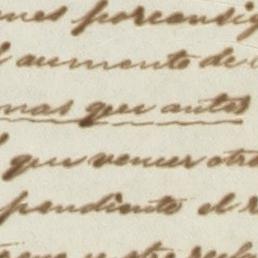 nes por consig
l aumento de
nas que antes
que vencer otro
pendiente el r